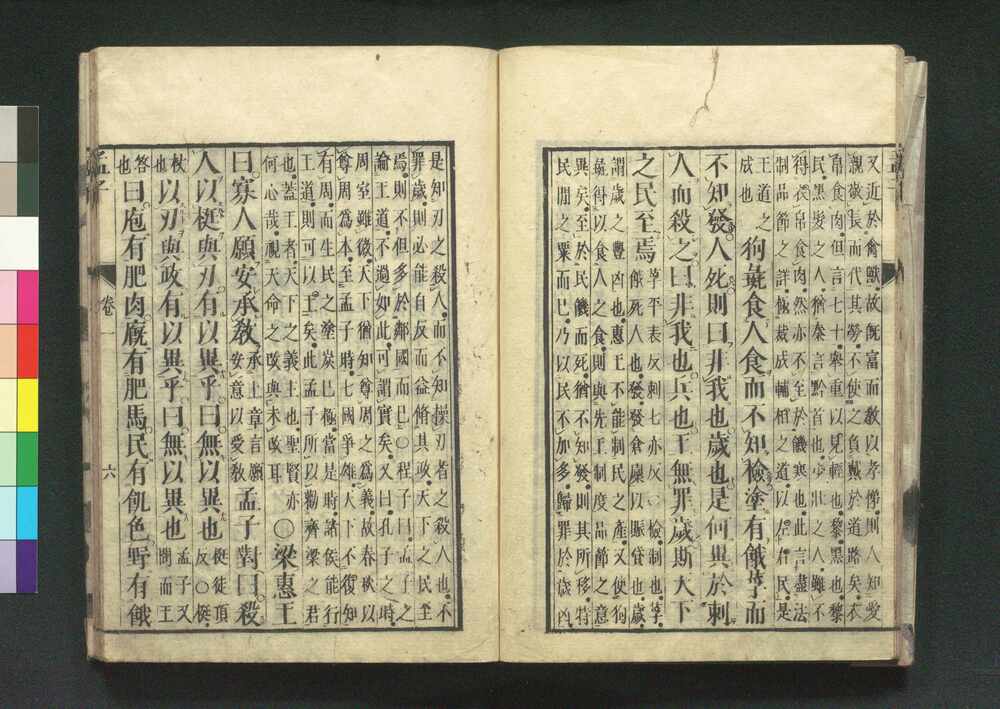 又近於禽獸故既富而教以孝悌則人知愛
親敬長而代其勞不使之負戴於道路矣衣
帛食肉但言七十舉重以見輕也黎黑也黎
民黑髮之人猶秦言黔首也少壯之人雖不
得衣帛食肉然亦不至於饑寒也此言盡法
制品節之詳極裁成輔相之道以左右民是
王道之成也狗彘食人食而不知檢塗有餓莩而
不知發人死則曰非我也歲也是何異於刺
人而殺之曰非我也兵也王無罪歲斯天下
之民至焉莩平表反刺七亦反○檢制也莩
餓死人也發發倉廩以賑貸也歲
謂歲之豐凶也惠王不能制民之產又使狗
彘得以食人之食則與先王制度品節之意
異矣至於民饑而死猶不知發則其所移特
民間之粟而已乃以民不加多歸罪於歲凶
是知刃之殺人而不知操刃者之殺人也不
罪歲則必能自反而益脩其政天下之民至
焉則不但多於鄰國而已○程子曰孟子之
論王道不過如此可謂實矣又曰孔子之時
周室雖微天下猶知尊周之為義故春秋以
尊周為本至孟子時七國爭雄天下不復知
有周而生民之塗炭已極當是時諸侯能行
王道則可以王矣此孟子所以勸齊梁之君
也蓋王者天下之義主也聖賢亦
何心哉視天命之改與未改耳○梁惠王
曰寡人願安承教承上章言願安意以受教孟子對曰殺
人以梃與刃有以異乎曰無以異也梃徒頂反○梃
杖也以刃與政有以異乎曰無以異也孟子又問而王
答也曰庖有肥肉廄有肥馬民有飢色野有餓
孟子 卷一 六